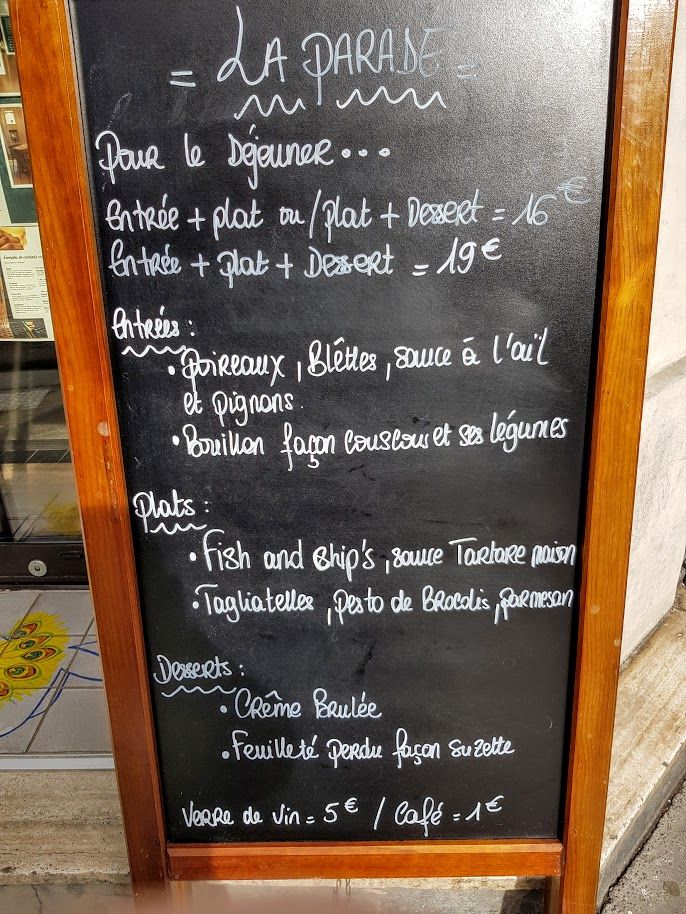 = LA PARADE =
Pour le Déjeuner...
Entrée + plat ou / plat + Dessert = 16 €
Entrée + plat + Dessert = 19 €
Entrées :
• Poireaux, Blêttes, sauce à l'aïl
et pignons.
• Bouillon façon couscous et ses légumes
Plats :
• Fish and Ship's, sauce Tartare maison
• Tagliatelles, pesto de Brocolis, parmesan
Desserts :
• Crême Brulée
• Feuilleté perdu façon suzette
Verre de vin = 5 € / Café = 1 €